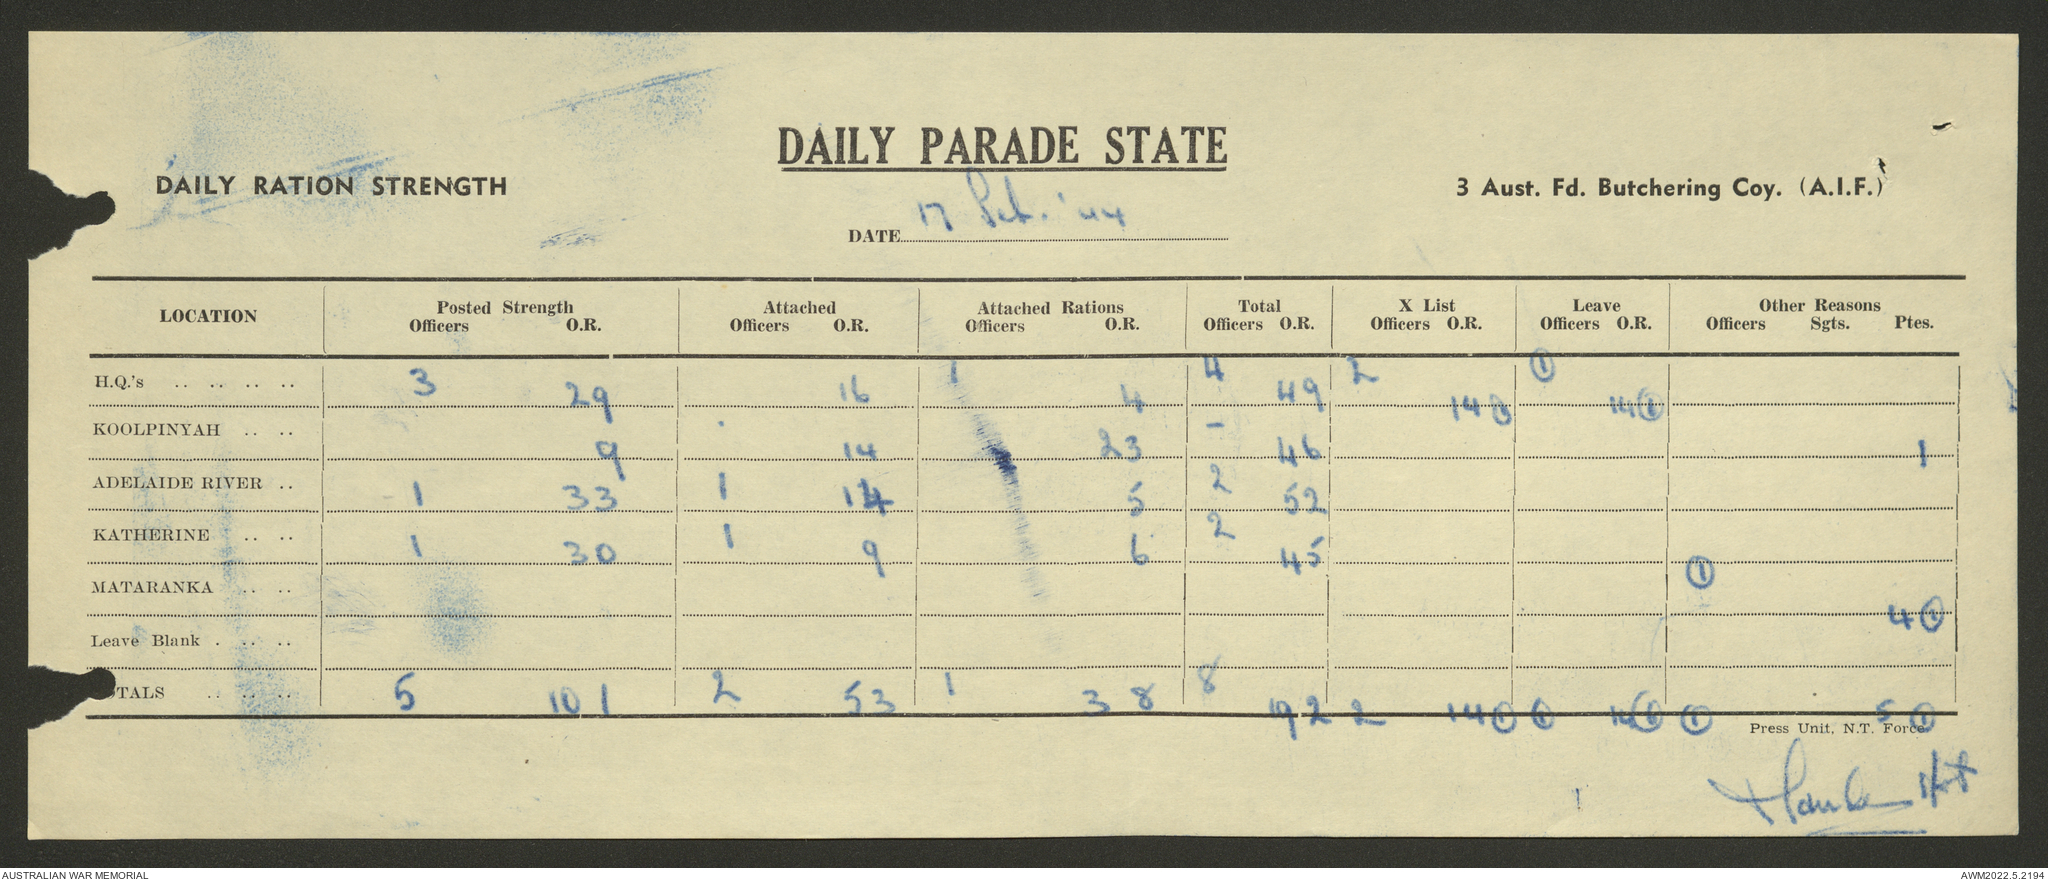 DAILY PARADE STATE
DAILY RATION STRENGTH
3 Aust. Fd. Butchering Coy. (A.I.F.)
DATE 17 '44
LOCATION Posted Strength Attached Attached Rations Total X List Leave Other Reasons
Officers O.R. Officers O.R. Officers O.R. Officers O.R. Officers O.R. Officers O.R. Officers Sgts. Ptes.
H.Q.'s .. .. .. .. 3 29 16 1 4 4 49 2 14 1 14 1
KOOLPINYAH .. .. 9 14 23 – 46 1
ADELAIDE RIVER .. 1 33 1 14 5 2 52
KATHERINE .. .. 1 30 1 9 6 2 45 1
MATARANKA .. .. 4 1
Leave Blank . .. ..
OTALS .. .. .. 5 101 2 53 1 38 8 192 2 14 1 1 1 1 5 1
Press Unit, N.T. Force
AUSTRALIAN WAR MEMORIAL
AWM2022.5.2194